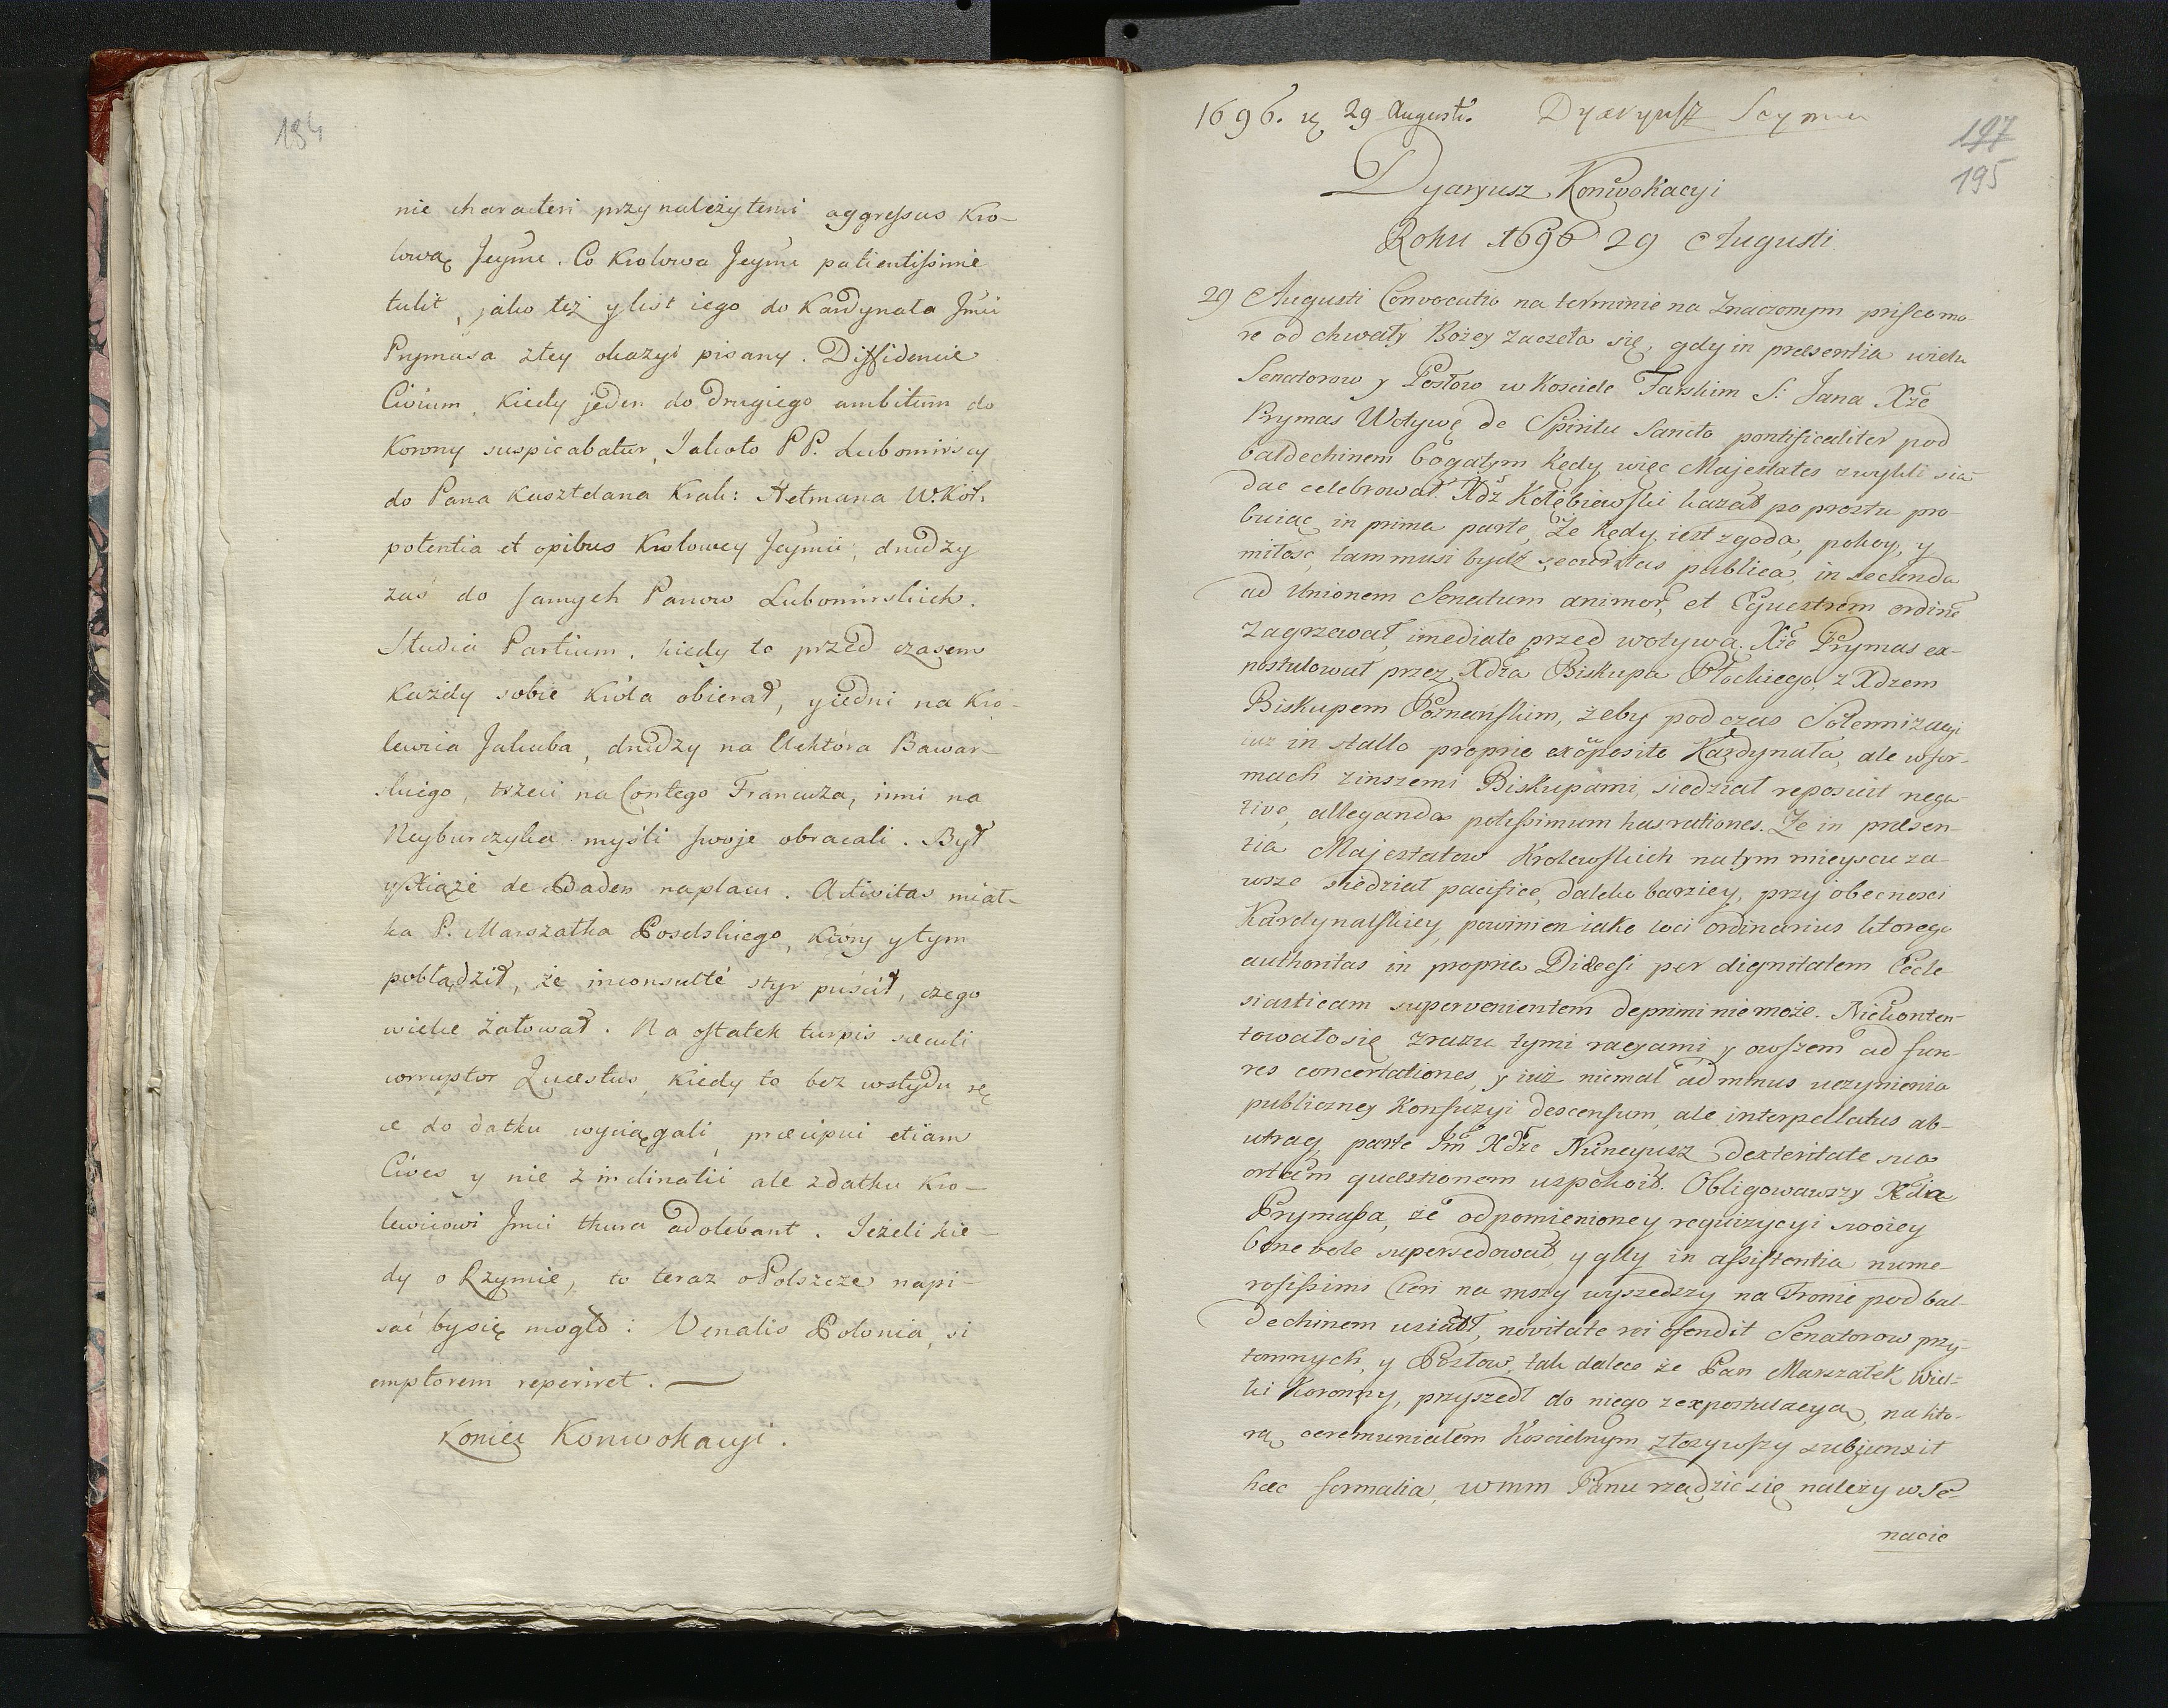 184
nie characteri przynależytemi aggressus Kro-
lową Jeymć. Co Krolowa Jeymć patientissime
tulit, jako też y list iego do Kardynała Jmći
Prymasa z tey okazyi pisany. Diffidencie
Civium, kiedy jeden do drugiego ambitum do
Korony suspicabatur, Jakoto PP. Lubomirscy
do Pana Kasztelana Krak: Hetmana W. Kor.
potentia et opibus Krolowey Jeymci, drudzy
zaś do samych Panow Lubomirskich.
Studia Partium, kiedy to przed czasem
każdy sobie króla obierał, y iedni na Kró-
lewica Jakuba, drudzy na Elektóra Bawar-
skiego, trzeci na Contego Francuza, inni na
Neyburczyka myśli swoje obracali. Był
y Xiąże de Baden na placu. Activitas miał-
ka P. Marszałka Poselskiego, który y tym
pobłądził, że inconsulté styr puścił, czego
wielce żałował. Na ostatek turpis sæculi
corruptor Quæstus, kiedy to bez wstydu rę
ce do datku wyciągali, præcipui etiam
Cives y nie z inclinatii ale z datku Kro-
lewicowi Jmći thura adolebant. Jeżeli kie-
dy o Rzymie, to teraz o Polszcze napi-
sać by się mogło: Venalis Polonia, si
emptorem reperiret.
Koniec Konwokacyi.
1696. 29 Augusti. Dyaryusz Seymu
197
195
Dyaryusz Konwokacyi
Roku 1696 29 Augusti
29 Augusti Convocatio na terminie naznaczonym prisco mo-
re od chwały Bożey zaczeła się, gdy in præsentia wielu
Senatorow y Posłow w Kosciele Farskim S. Jana Xże
Prymas Wotywę de Spiritu Sancto pontificaliter pod
baldechinem bogatym kędy więc Majestates zwykli sia-
dac celebrował. Xdz Kołębiewski kazał po prostu pro-
buiąc in prima parte, Że kędy iest zgoda, pokoy, y
miłosc, tam musi bydź securitas publica, in secunda
ad Unionem Senatum animor. et Equestrem ordine
zagrzewał, imediate przed wotywą. Xże Prymas ex-
postulował przez Xdza Biskupa Płockiego, z Xdzem
Biskupem Poznanskim, żeby pod czas Solennizacyi
in stallo proprio ex opposito Kardynała, ale w for-
mach z inszemi Biskupami siedział reposuit nega-
tive, allegando potissimum has rationes. Że in præsen-
tia Majestatow Krolewskich na tym mieyscu za-
wsze siedział pacifice, daleko barziey, przy obecnosci
Kardynalskiey, powinien iako loci ordinarius ktorego
authoritas in propria Diæcesi per dignitatem Eccle-
siasticam supervenientem deprimi nie może. Niekonten-
towało się zrazu tymi racyami, y owszem ad fur-
res concertationes, y iuż niemal ad minus uczynienia
publiczney Konfuzyi descensum, ale interpellatus ab-
utraq parte Jm Xdze Nuncyusz dexteritate sua
ortam quæstionem uspokoił. Obligowawszy Xdza
Prymasa, że od pomienioney requizycyi swoiey
bene vole supersedował, y gdy in assistentia nume-
rosissimi Cleri na mszy wyszedszy na Tronie pod bal-
dechinem usiadł, novitate rei ofendit Senatorow przy-
tomnych, y Posłow, tak dalece że Pan Marszałek Wiel-
ki Koronny, przyszedł do niego z expostulacyą, na kto-
rą ceremuniałem Koscielnym złożywszy subjunxit
hæc formalia, wmm Panu rządzic się należy w Se-
nacie